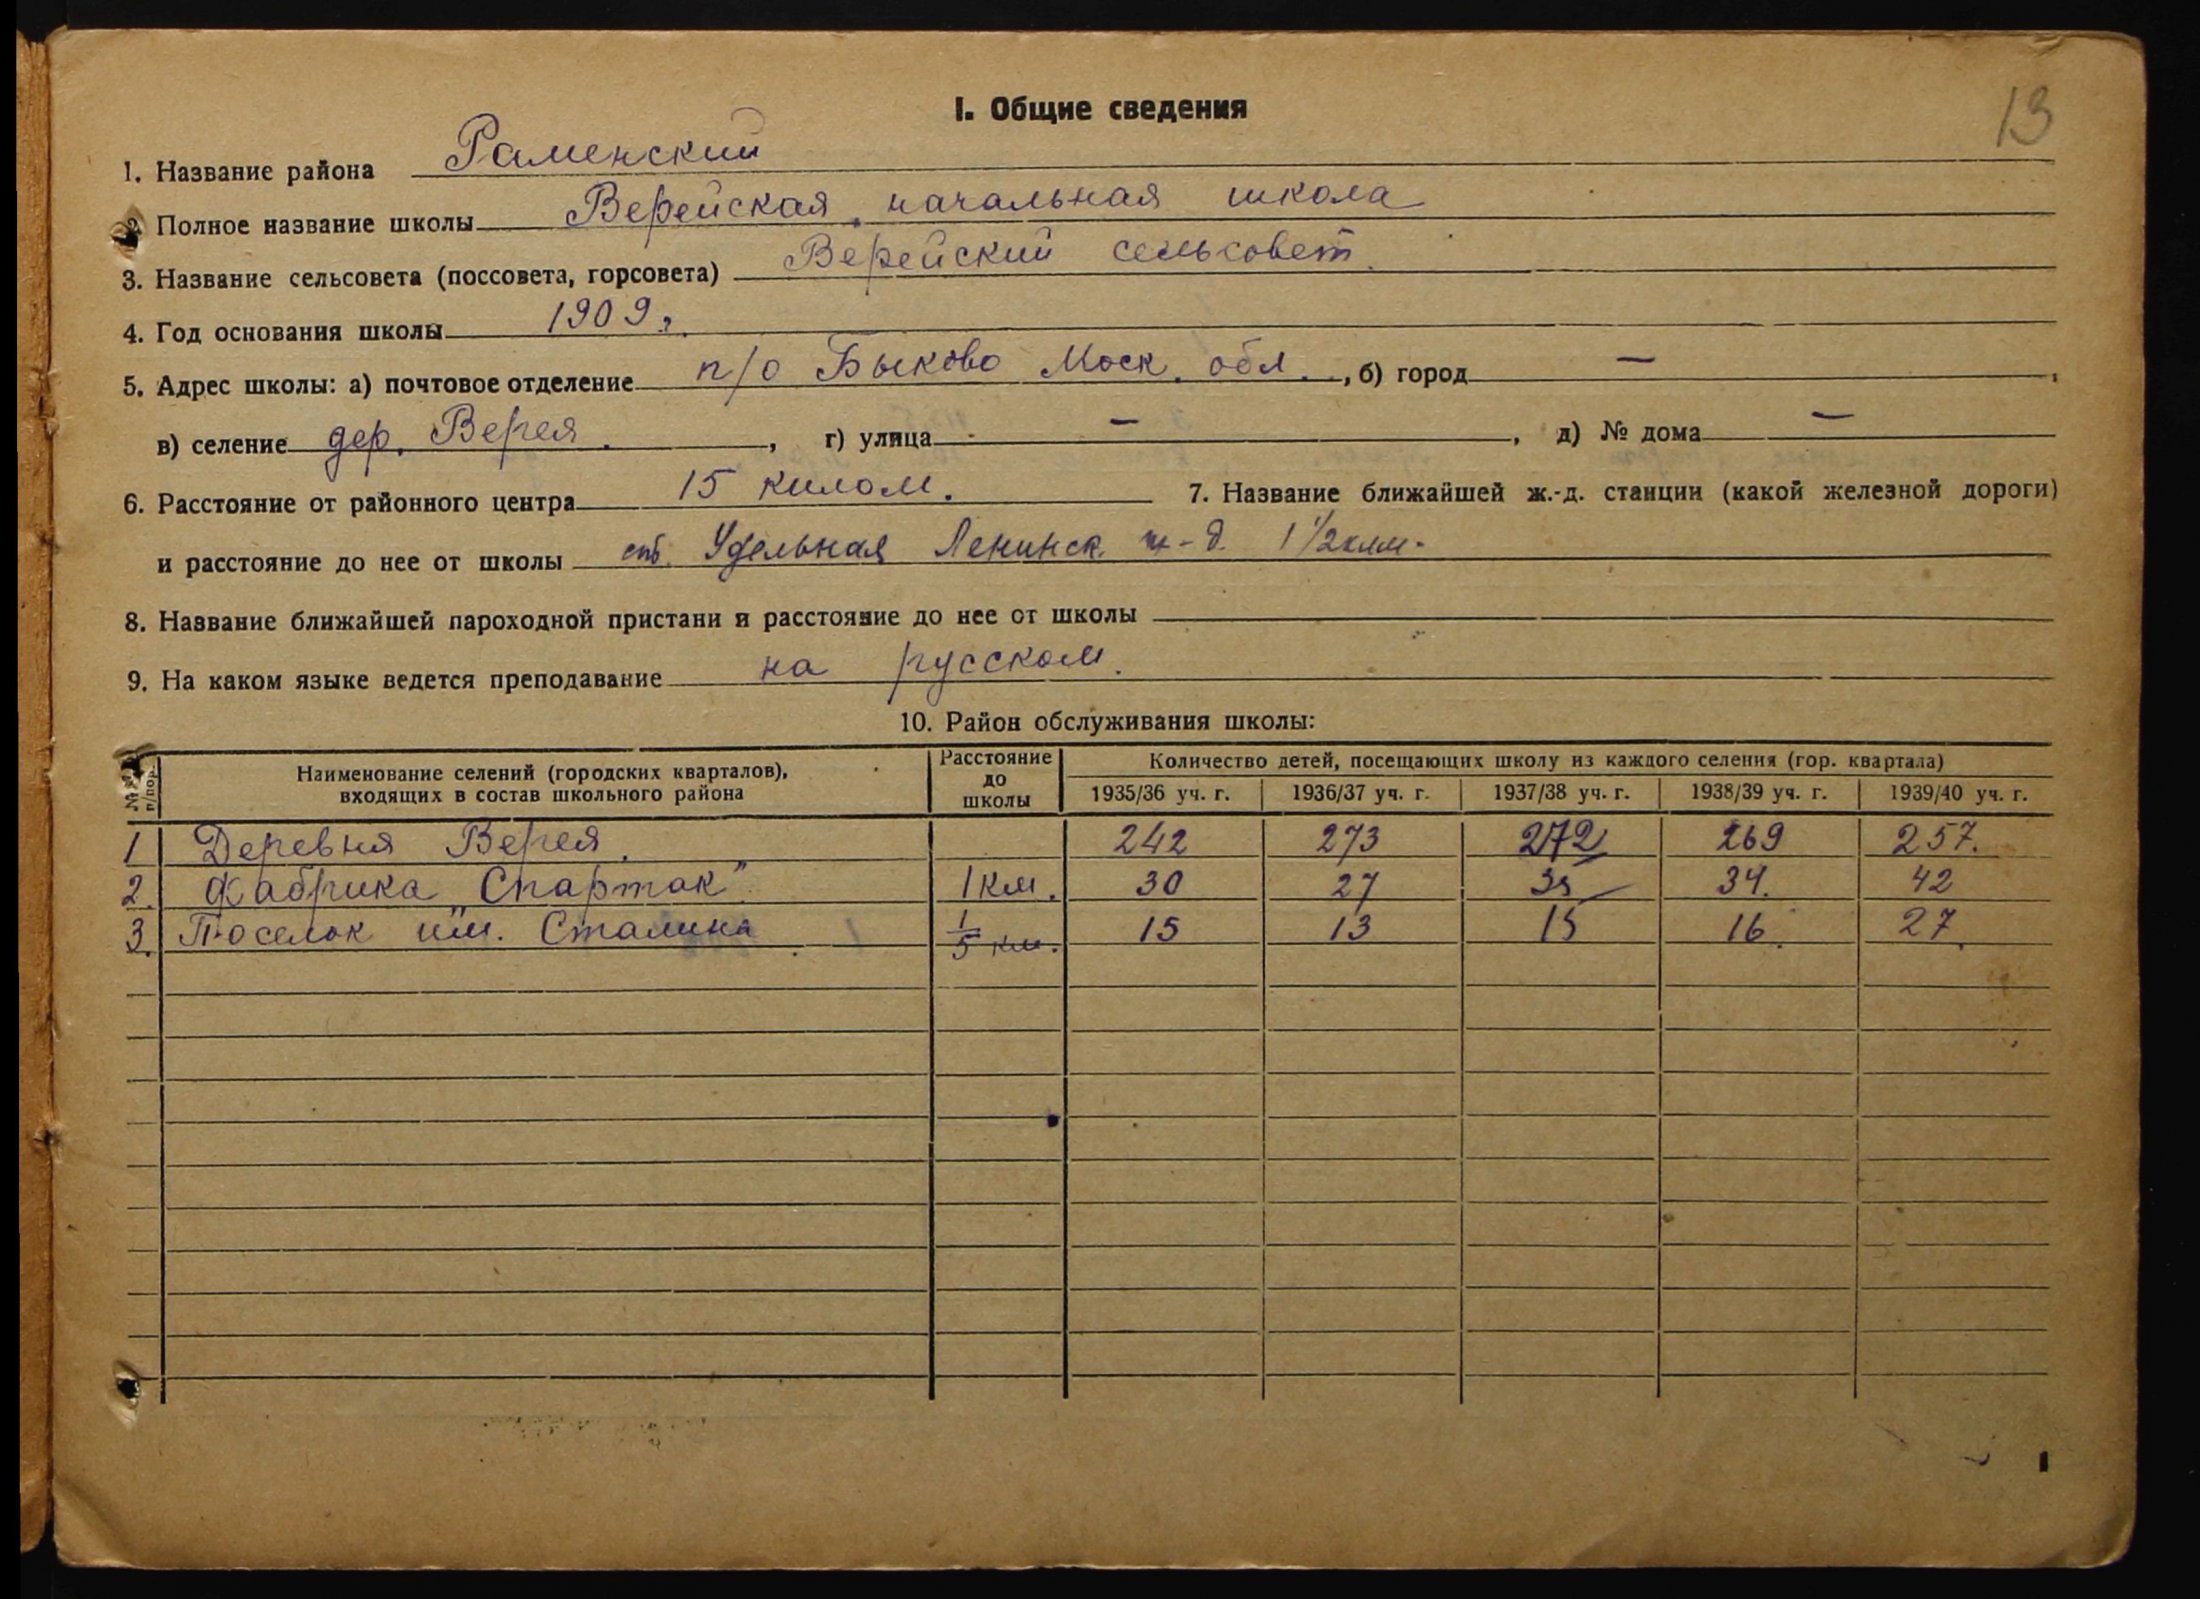 13
I. Общие сведения
1. Название района Раменский
2. Полное название школы Верейская начальная школа
3. Название сельсовета (поссовета, горсовета) Верейский сельсовет.
4. Год основания школы 1909 г.
5. Адрес школы: а) почтовое отделение п/о Быково Моск. обл., б) город —,
в) селение дер. Верея., г) улица —, д) № дома —
6. Расстояние от районного центра 15 килом. 7. Название ближайшей ж.-д. станции (какой железной дороги)
и расстояние до нее от школы ст. Удельная Ленинск. ж-д. 1 1/2 клм.
8. Название ближайшей пароходной пристани и расстояние до нее от школы
9. На каком языке ведется преподавание на русском.
10. Район обслуживания школы:
№№ п/пор. Наименование селений (городских кварталов), входящих в состав школьного района Расстояние до школы Количество детей, посещающих школу из каждого селения (гор. квартала)
1935/36 уч. г. 1936/37 уч. г. 1937/38 уч. г. 1938/39 уч. г. 1939/40 уч. г.
1 Деревня Верея. 242 273 272 269 257.
2. Фабрика „Спартак" 1 км. 30 27 34. 42
3. Поселок им. Сталина 1/5 км. 15 13 15 16. 27.
1